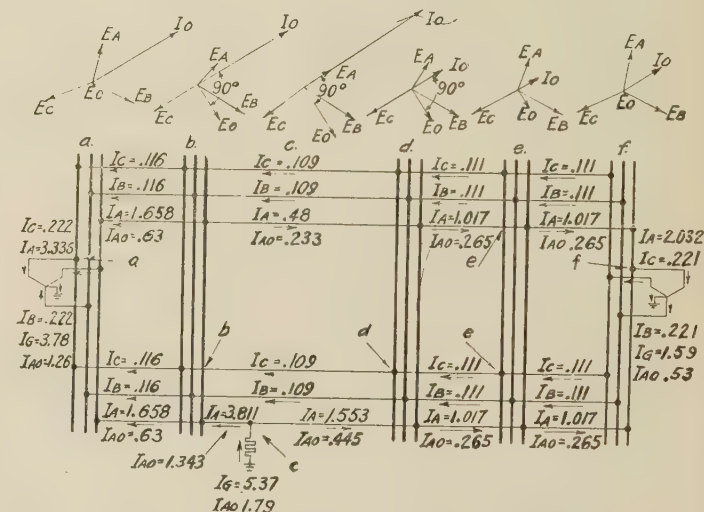 EA IO EC EO EB
EA IO 90° EC EO EB
IO EA 90° EC EO EB
EA IO 90° EC EO EB
EA IO EC EO EB
EA IO EC EO EB
a. b. c. d. e. f.
IC=.116 IC=.109 IC=.111 IC=.111
IB=.116 IB=.109 IB=.111 IB=.111
IA=1.658 IA=.48 IA=1.017 IA=1.017
IAO=.63 IAO=.233 IAO=.265 IAO=.265
IC=.222
IA=3.336
a
IB=.222
IG=3.78
IAO=1.26
e f
IA=2.032
IC=.221
IB=.221
IG=1.59
IAO .53
b d e
IC=.116 IC=.109 IC=.111 IC=.111
IB=.116 IB=.109 IB=.111 IB=.111
IA=1.658 IA=3.811 IA=1.553 IA=1.017 IA=1.017
IAO=.63 IAO=.445 IAO=.265 IAO=.265
IAO=1.343 c
IG=5.37
IAO 1.79